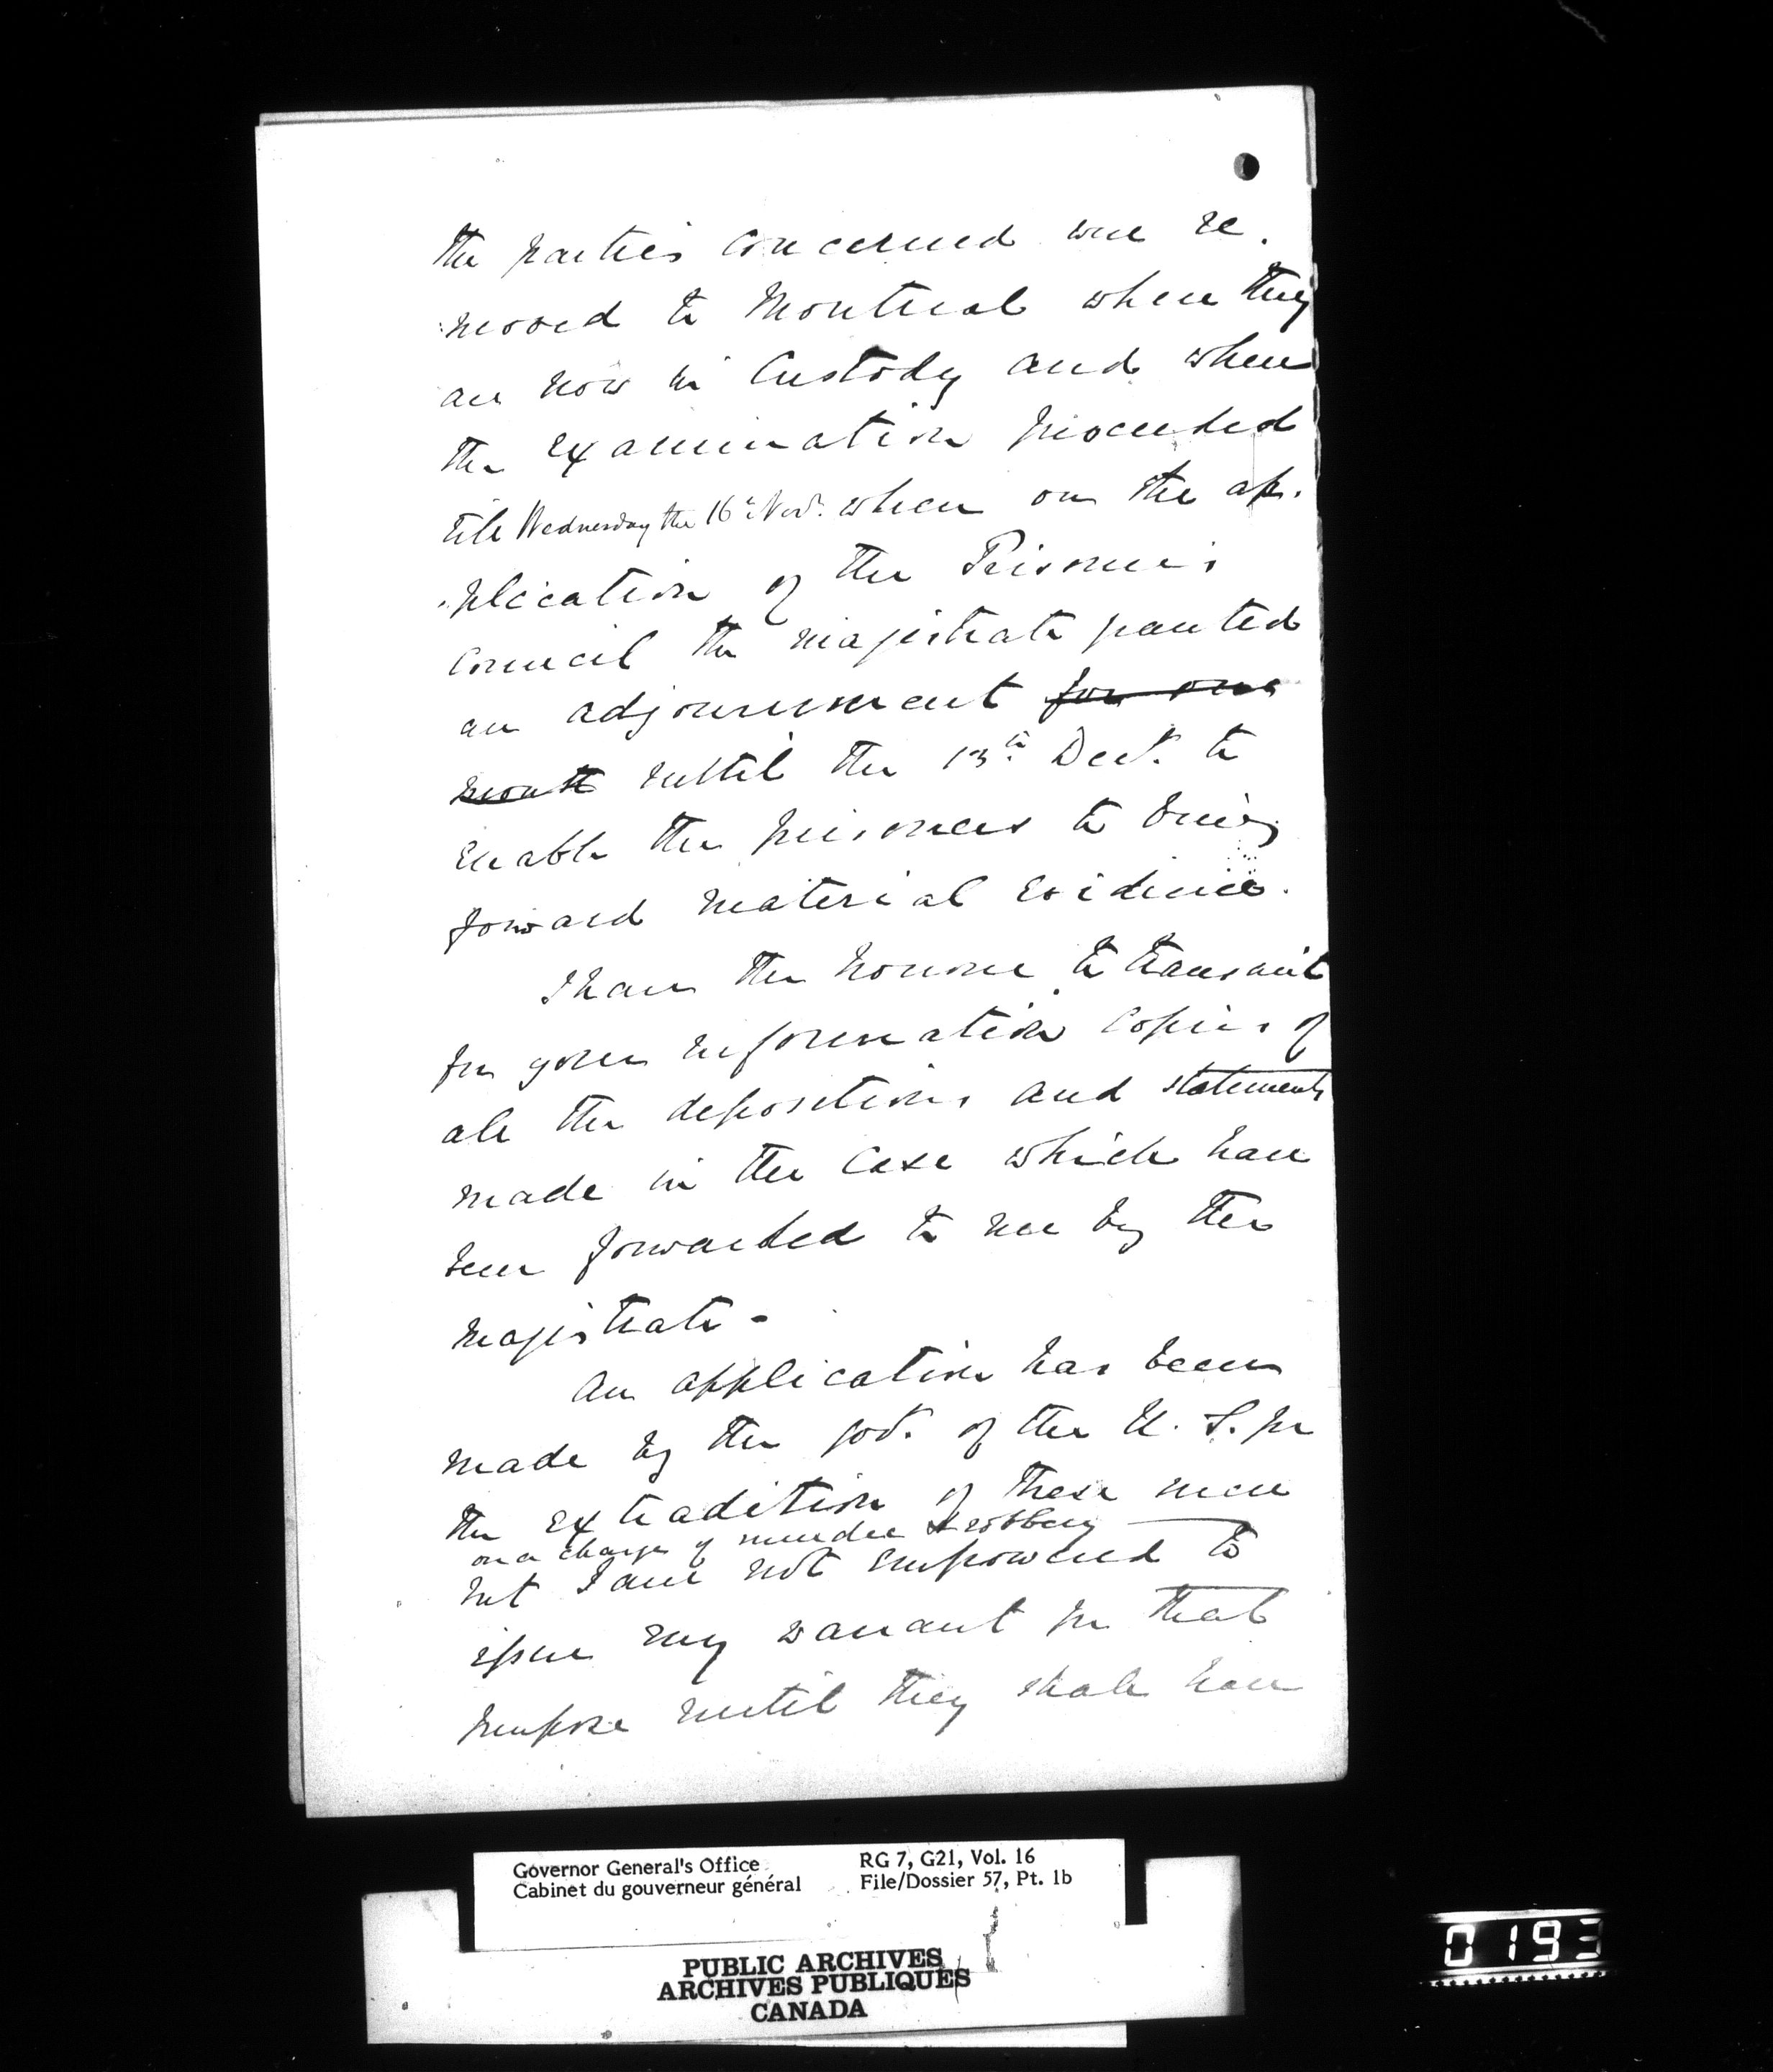 the parties concerned were re.
:moved to Montreal where they
are now in Custody and where
the examination proceeded
till Wednesday the 16th Novr. when on the ap.
.plication of the Prisoner's
Council the magistrate granted
an adjournment ~~for one~~
~~month~~ until the 13th Decr. to
enable the prisoners to bring
forward material evidence.
I have the honour to transmit
for your information copies of
all the depositions and statements
made in the case which have
been forwarded to me by the
magistrate -
An application has been
made by the govt. of the U. S. for
the extradition of these men
on a charge of murder & robbery
but I am not empowered to
issue my warrant for that
purpose until they shall have
Governor General's Office RG 7, G21, Vol. 16
Cabinet du gouverneur général File/Dossier 57, Pt. 1b
PUBLIC ARCHIVES
ARCHIVES PUBLIQUES
CANADA
0193